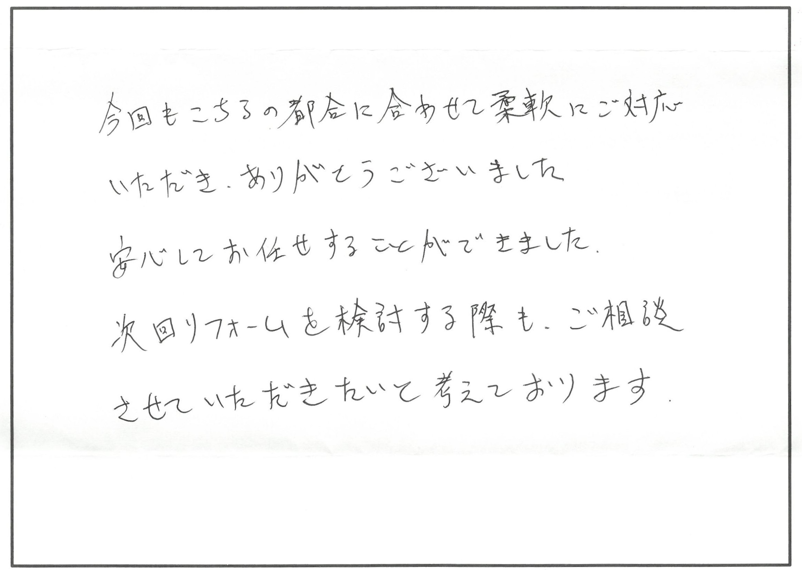 今回もこちらの都合に合わせて柔軟にご対応
いただき、ありがとうございました
安心してお任せすることができました。
次回リフォームを検討する際も、ご相談
させていただきたいと考えております。